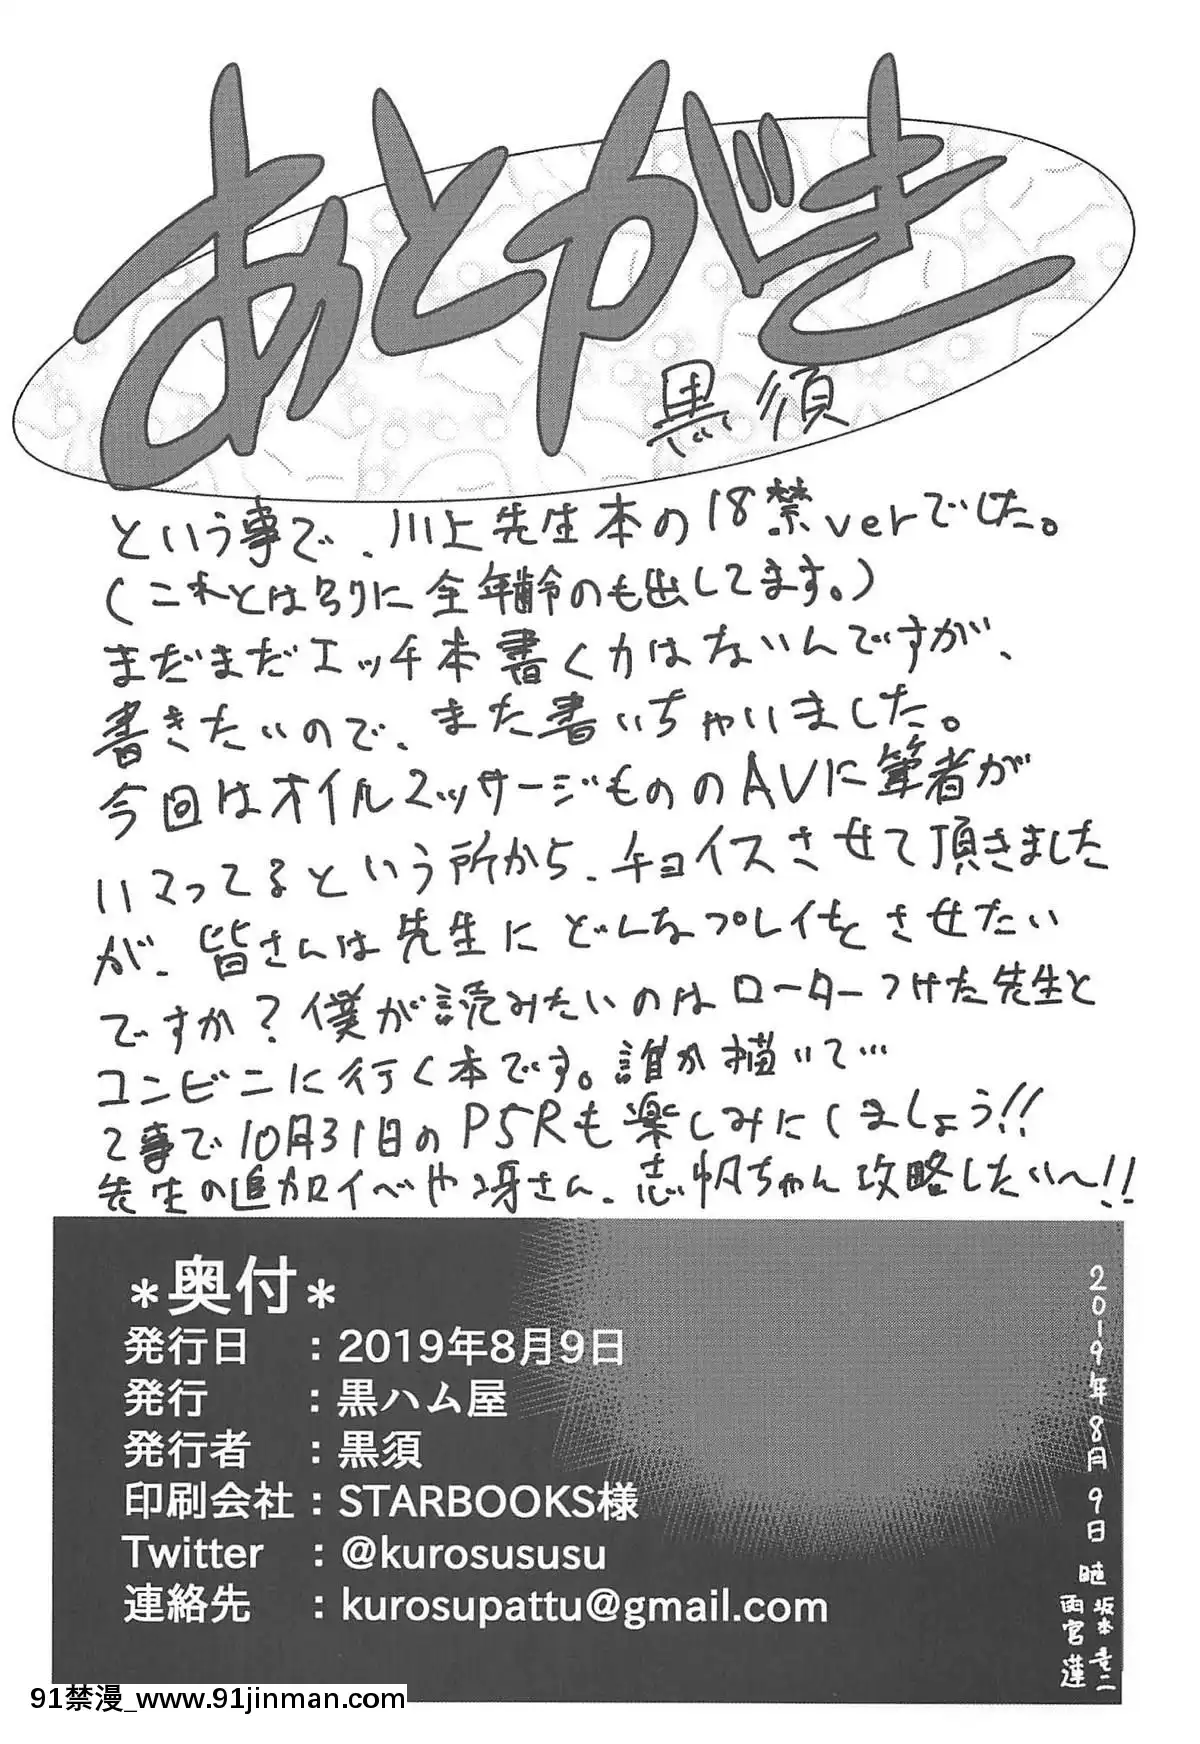 あとがき
黒須
という事で、川上先生本の18禁verでした。
(これとは別に全年齢のも出してます。)
まだまだエッチ本書く力はないんですが、
書きたいので、また書いちゃいました。
今回はオイルマッサージもののAVに筆者が
ハマってるという所から、チョイスさせて頂きました
が、皆さんは先生にどんなプレイをさせたい
ですか?僕が読みたいのはローターつけた先生と
コンビニに行く本です。誰か描いて…
て事で10月31日のP5Rも楽しみにしましょう!!
先生の追加イベや冴さん、志帆ちゃん攻略したい〜!!
*奥付*
発行日 :2019年8月9日
発行 :黒ハム屋
発行者 :黒須
印刷会社:STARBOOKS様
Twitter :@kurosususu
連絡先 :kurosupattu@gmail.com
2019年8月9日 暁 坂本竜二
雨宮蓮
91禁漫_www.91jinman.com